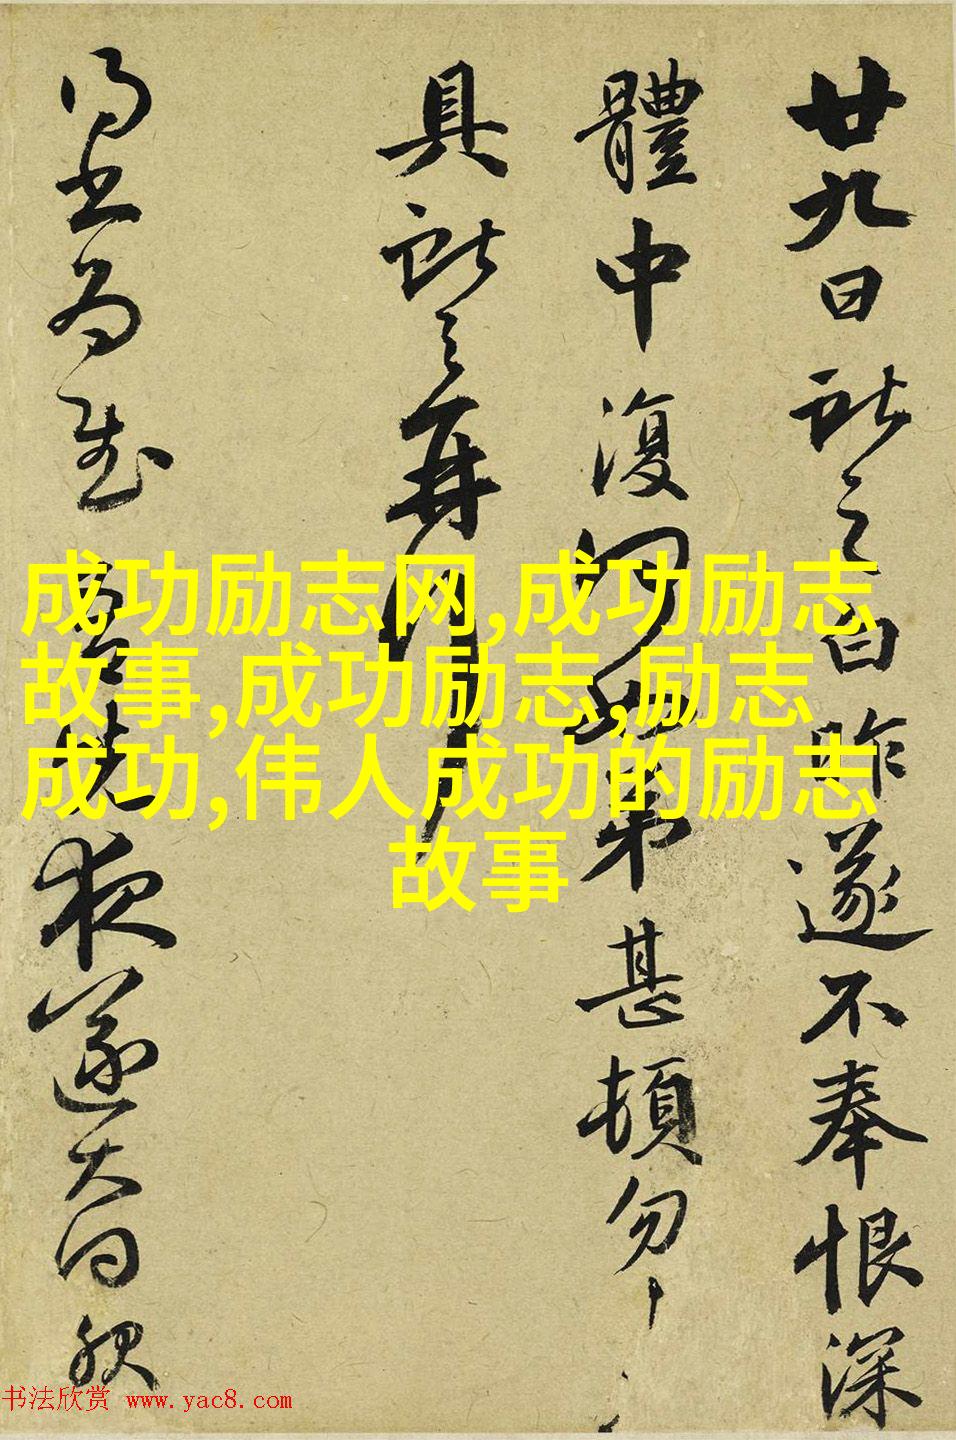 廿九日獻之白昨遂不奉恨深
體中復何如弟甚頓勿
具獻之再拜
為 夜遂大
成功励志网,成功励志
故事,成功励志,励志
成功,伟人成功的励志
故事
书法欣赏 www.yac8.com